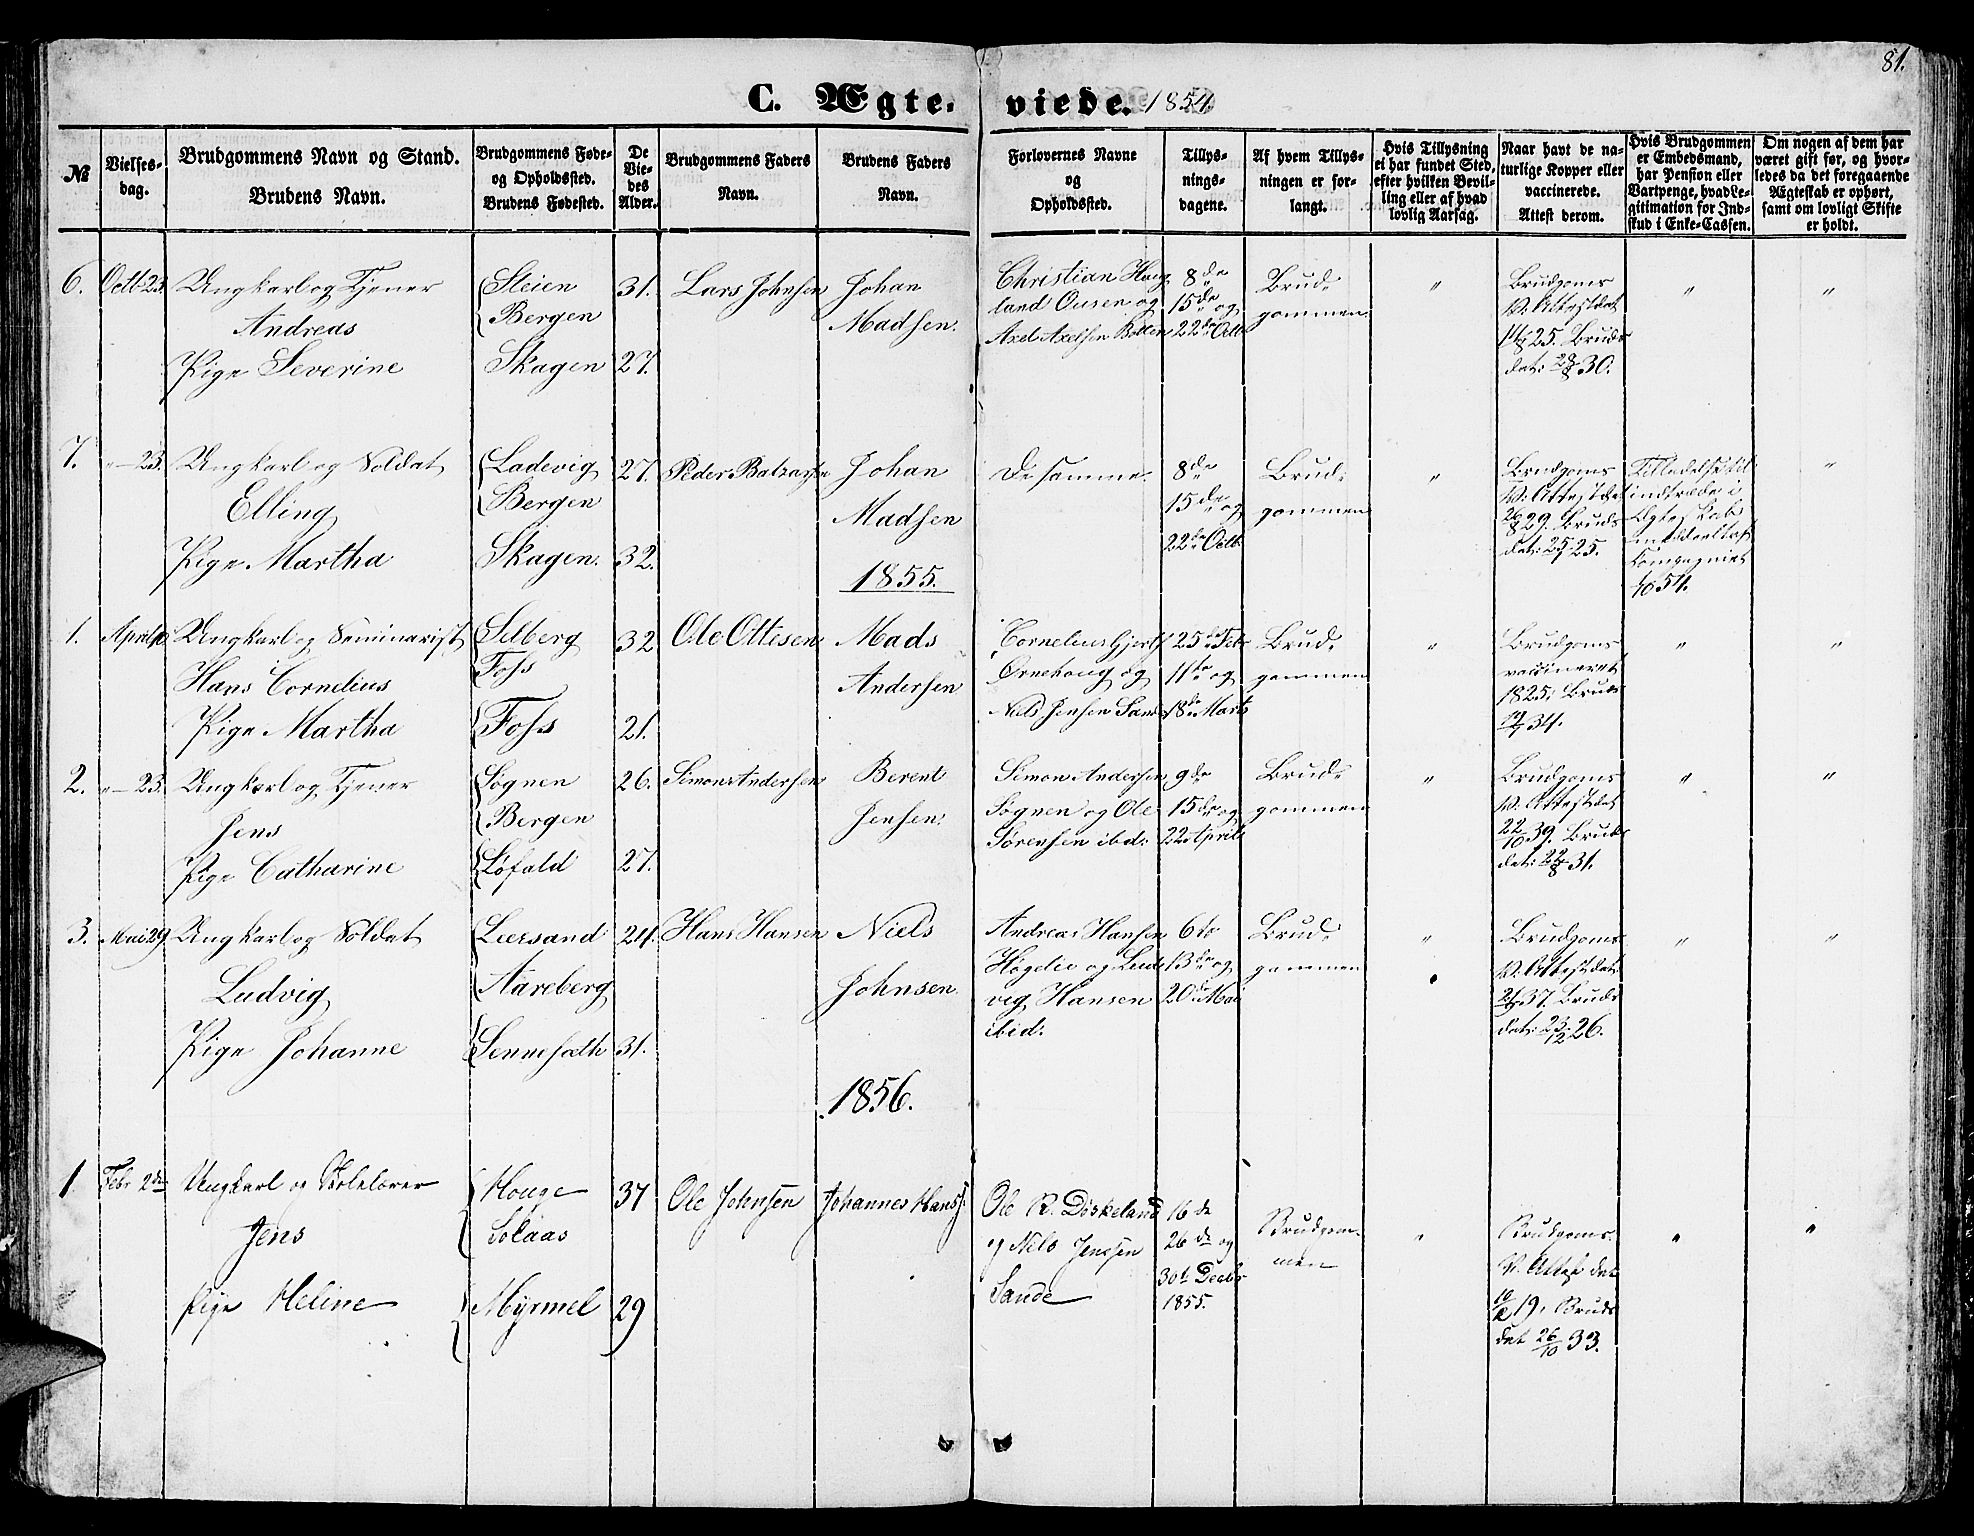 81.
C. Ægte- viede. 1854.
№
Vielses-
dag.
Brudgommens Navn og Stand.
Brudens Navn.
Brudgommens Føde-
og Opholdssted.
Brudens Fødested.
De
Vie-
des
Alder.
Brudgommens Faders
Navn.
Brudens Faders
Navn.
Forlovernes Navne
og
Opholdssted.
Tillys-
nings-
dagene.
Af hvem Tillys-
ningen er for-
langt.
Hvis Tillysning
ei har fundet Sted,
efter hvilken Bevil-
ling eller af hvad
lovlig Aarsag.
Naar havt de na-
turlige Kopper eller
vaccinerede.
Attest derom.
Hvis Brudgommen
er Embedsmand,
har Pension eller
Vartpenge, hvad Le-
gitimation for Ind-
skud i Enke-Cassen.
Om nogen af dem har
været gift før, og hvor-
ledes da det foregaaende
Ægteskab er ophørt,
samt om lovligt Skifte
er holdt.
6. Octb 23. Ungkarl og Tjener
Andreas
Pige Severine
Steien
Bergen
Skagen
31.
27.
Lars Johnsen
Johan
Madsen.
Christian Houg
land Ousen og
Axel Axelsen Botten
8de
15de og
22de Octb
Brud-
gommen
"
Brudgoms
V: Attest dat
25. Bruds
dat: 30.
"
"
7. "-23. Ungkarl og Soldat
Elling
Pige Martha
Ladevig
Bergen
Skagen.
27.
32.
Peder Balzarsen
Johan
Madsen
De samme.
8de
15de og
22de Octb
Brud-
gommen
"
Brudgoms
V: Attest dat
26/8 29. Bruds
dat: 25.
Tilladelse til
indtræde i
Ægteskab
meddeelt af
Kompagniet
54.
"
1855.
1. April Ungkarl og Seminarist
Hans Cornelius
Pige Martha
Selberg
Foss
Foss
32
21.
Ole Ottesen
Mads
Andersen
Cornelius
Ornehoug og
Niels Jensen Sande
25de Febr
11te og
18de Marts
Brud-
gommen
"
Brudgoms
vaccineret
1825. Bruds
34.
"
"
2. "-23. Ungkarl og Tjener
Jens
Pige Catharine
Søgnen
Bergen
Løfald
26.
27.
Simon Andersen
Berent
Jensen.
Simon Andersen
Søgnen og Ole
Sørensen ibd:
9de
15de og
22 April
Brud-
gommen
"
Brudgoms
V: Attest dat
22/10 39. Bruds
dat: 22/8 31.
"
"
3. Mai 29. Ungkarl og Soldat
Ludvig
Pige Johanne
Leersand
Aareberg
Sennesæth
24.
31.
Hans Hansen
Niels
Johnsen.
Andreas Hansen
Høgelie og Lud-
vig Hansen
ibid:
6te
13de og
20de Mai
Brud-
gommen
"
Brudgoms
V: Attest dat:
37. Bruds
dat: 23/12 26.
"
"
1856.
1 Febr 2den Ungkarl og Skolelærer
Jens
Pige Heline
Houge
Solaas
Myrmel
37
29
Ole Johnsen
Johannes Hans.
Ole R. Døskeland
og Nils Jensen
Sande
16de
26de og
30te Decbr
1855.
Brudgom-
men
"
Brudgoms.
V. Attest dat
19. Bruds
dat 26/10 33.
"
"